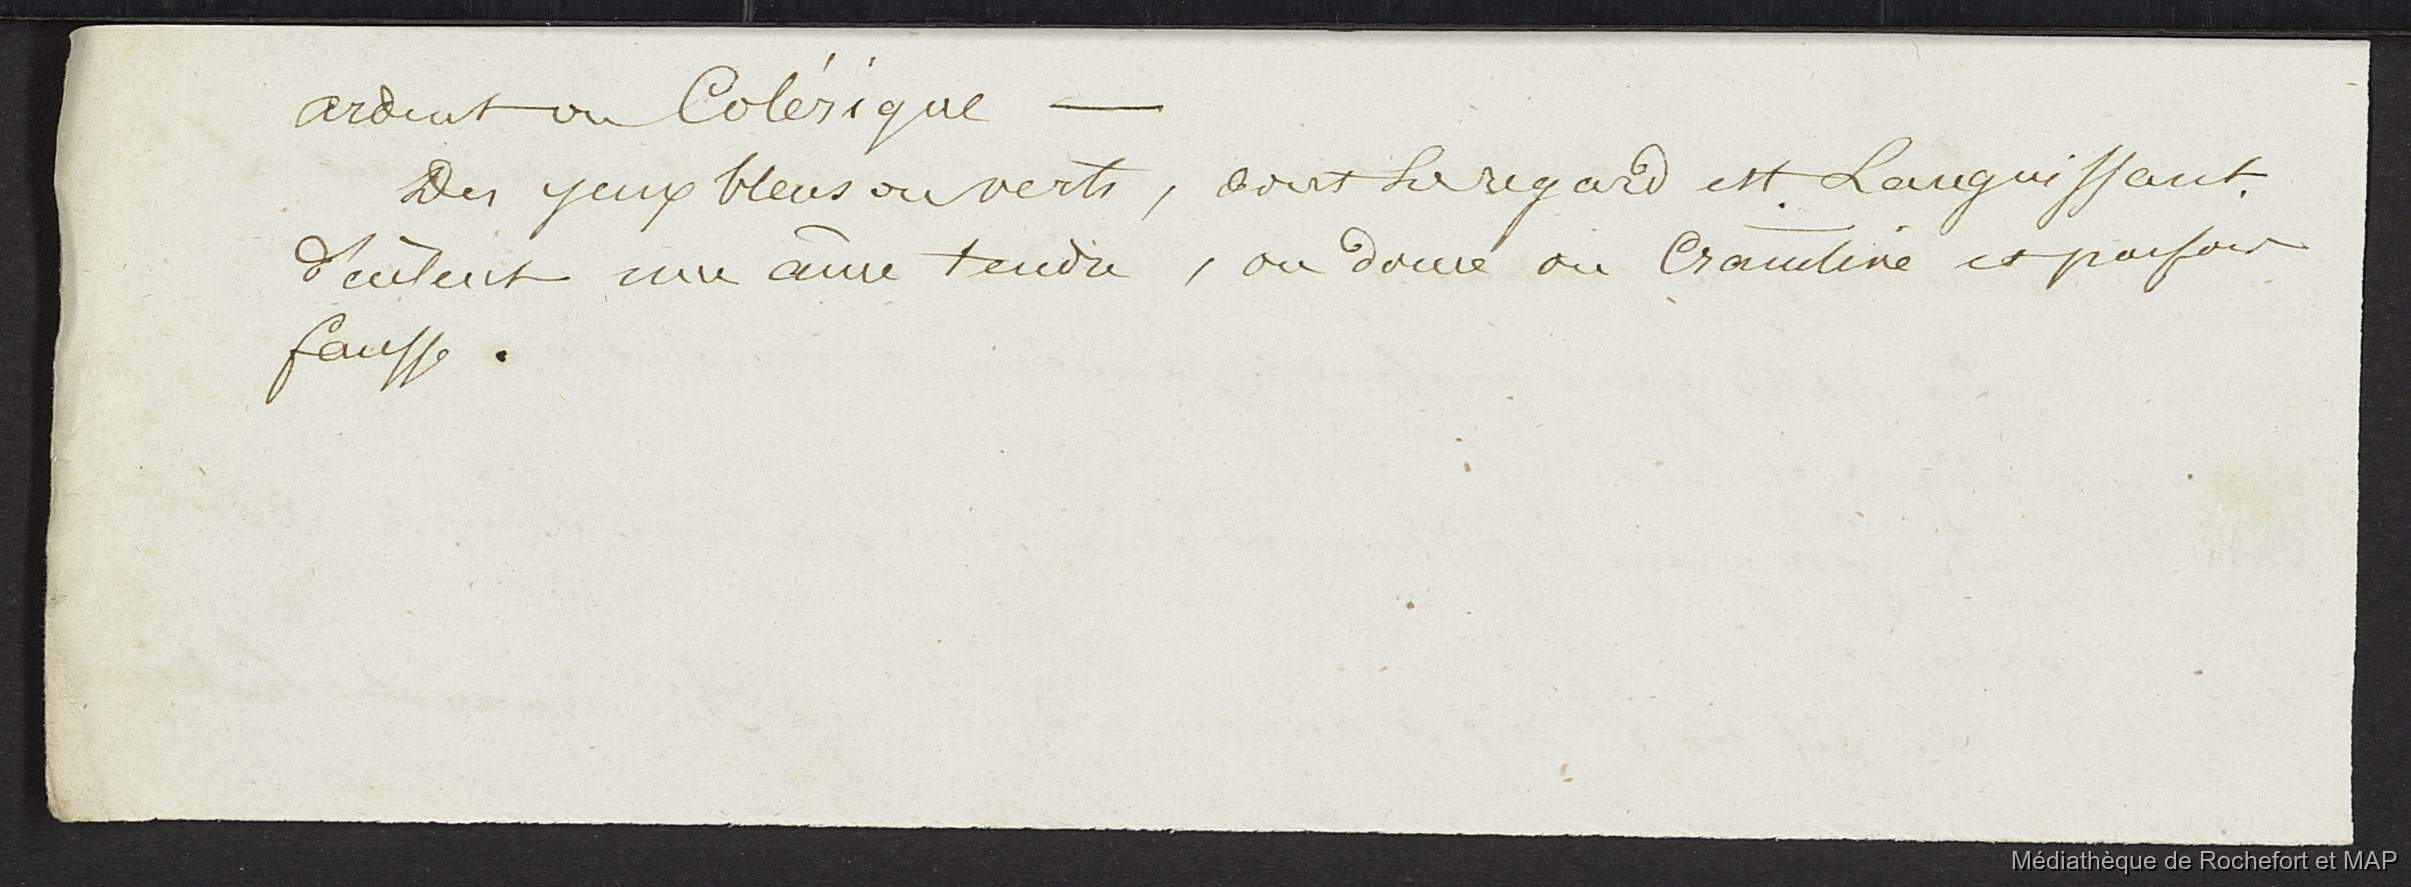 ardent ou Colérique —
Des yeux bleus ou verts, dont le regard est Languissant.
d'cûlent une âme tendre, ou douce ou Craintive et parfois
fausse.
Médiathèque de Rochefort et MAP